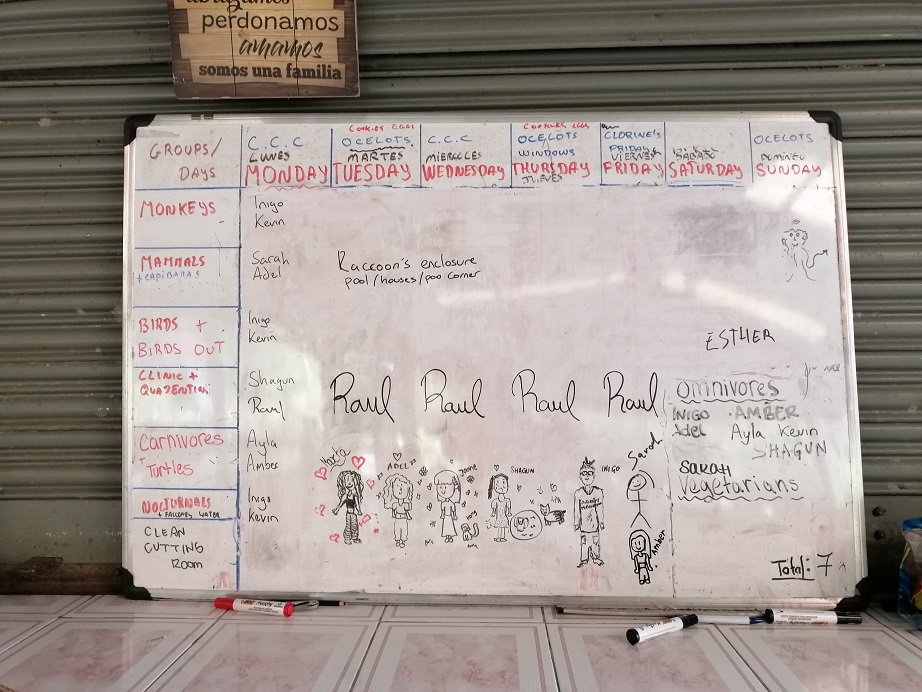 perdonamos
amamos
somos una familia
GROUPS/
DAYS
C.C.C
LUNES
MONDAY
OCELOTS
MARTES
TUESDAY
C.C.C
MIERCOLES
WEDNESDAY
OCELOTS
WINDOWS
THURSDAY
JUEVES
CLORINE'S
FRIDAY
VIERNES
FRIDAY
SABADO
SATURDAY
OCELOTS
DOMINGO
SUNDAY
MONKEYS
Inigo
Kevin
MAMMALS
+ CAPIBARAS
Sarah
Adel
Raccoon's enclosure
pool/houses/poo corner
BIRDS +
BIRDS OUT
Inigo
Kevin
ESTHER
CLINIC +
QUARENTINE
Shagun
Raul
Raul
Raul
Raul
Raul
Omnivores
INIGO AMBER
Adel Ayla Kevin
SHAGUN
SARAH
Vegetarians
Carnivores
+ Turtles
Ayla
Amber
ADEL
SHAGUN
INIGO
Sarah
Amber
NOCTURNALS
Inigo
Kevin
CLEAN
CUTTING
ROOM
Total: 7